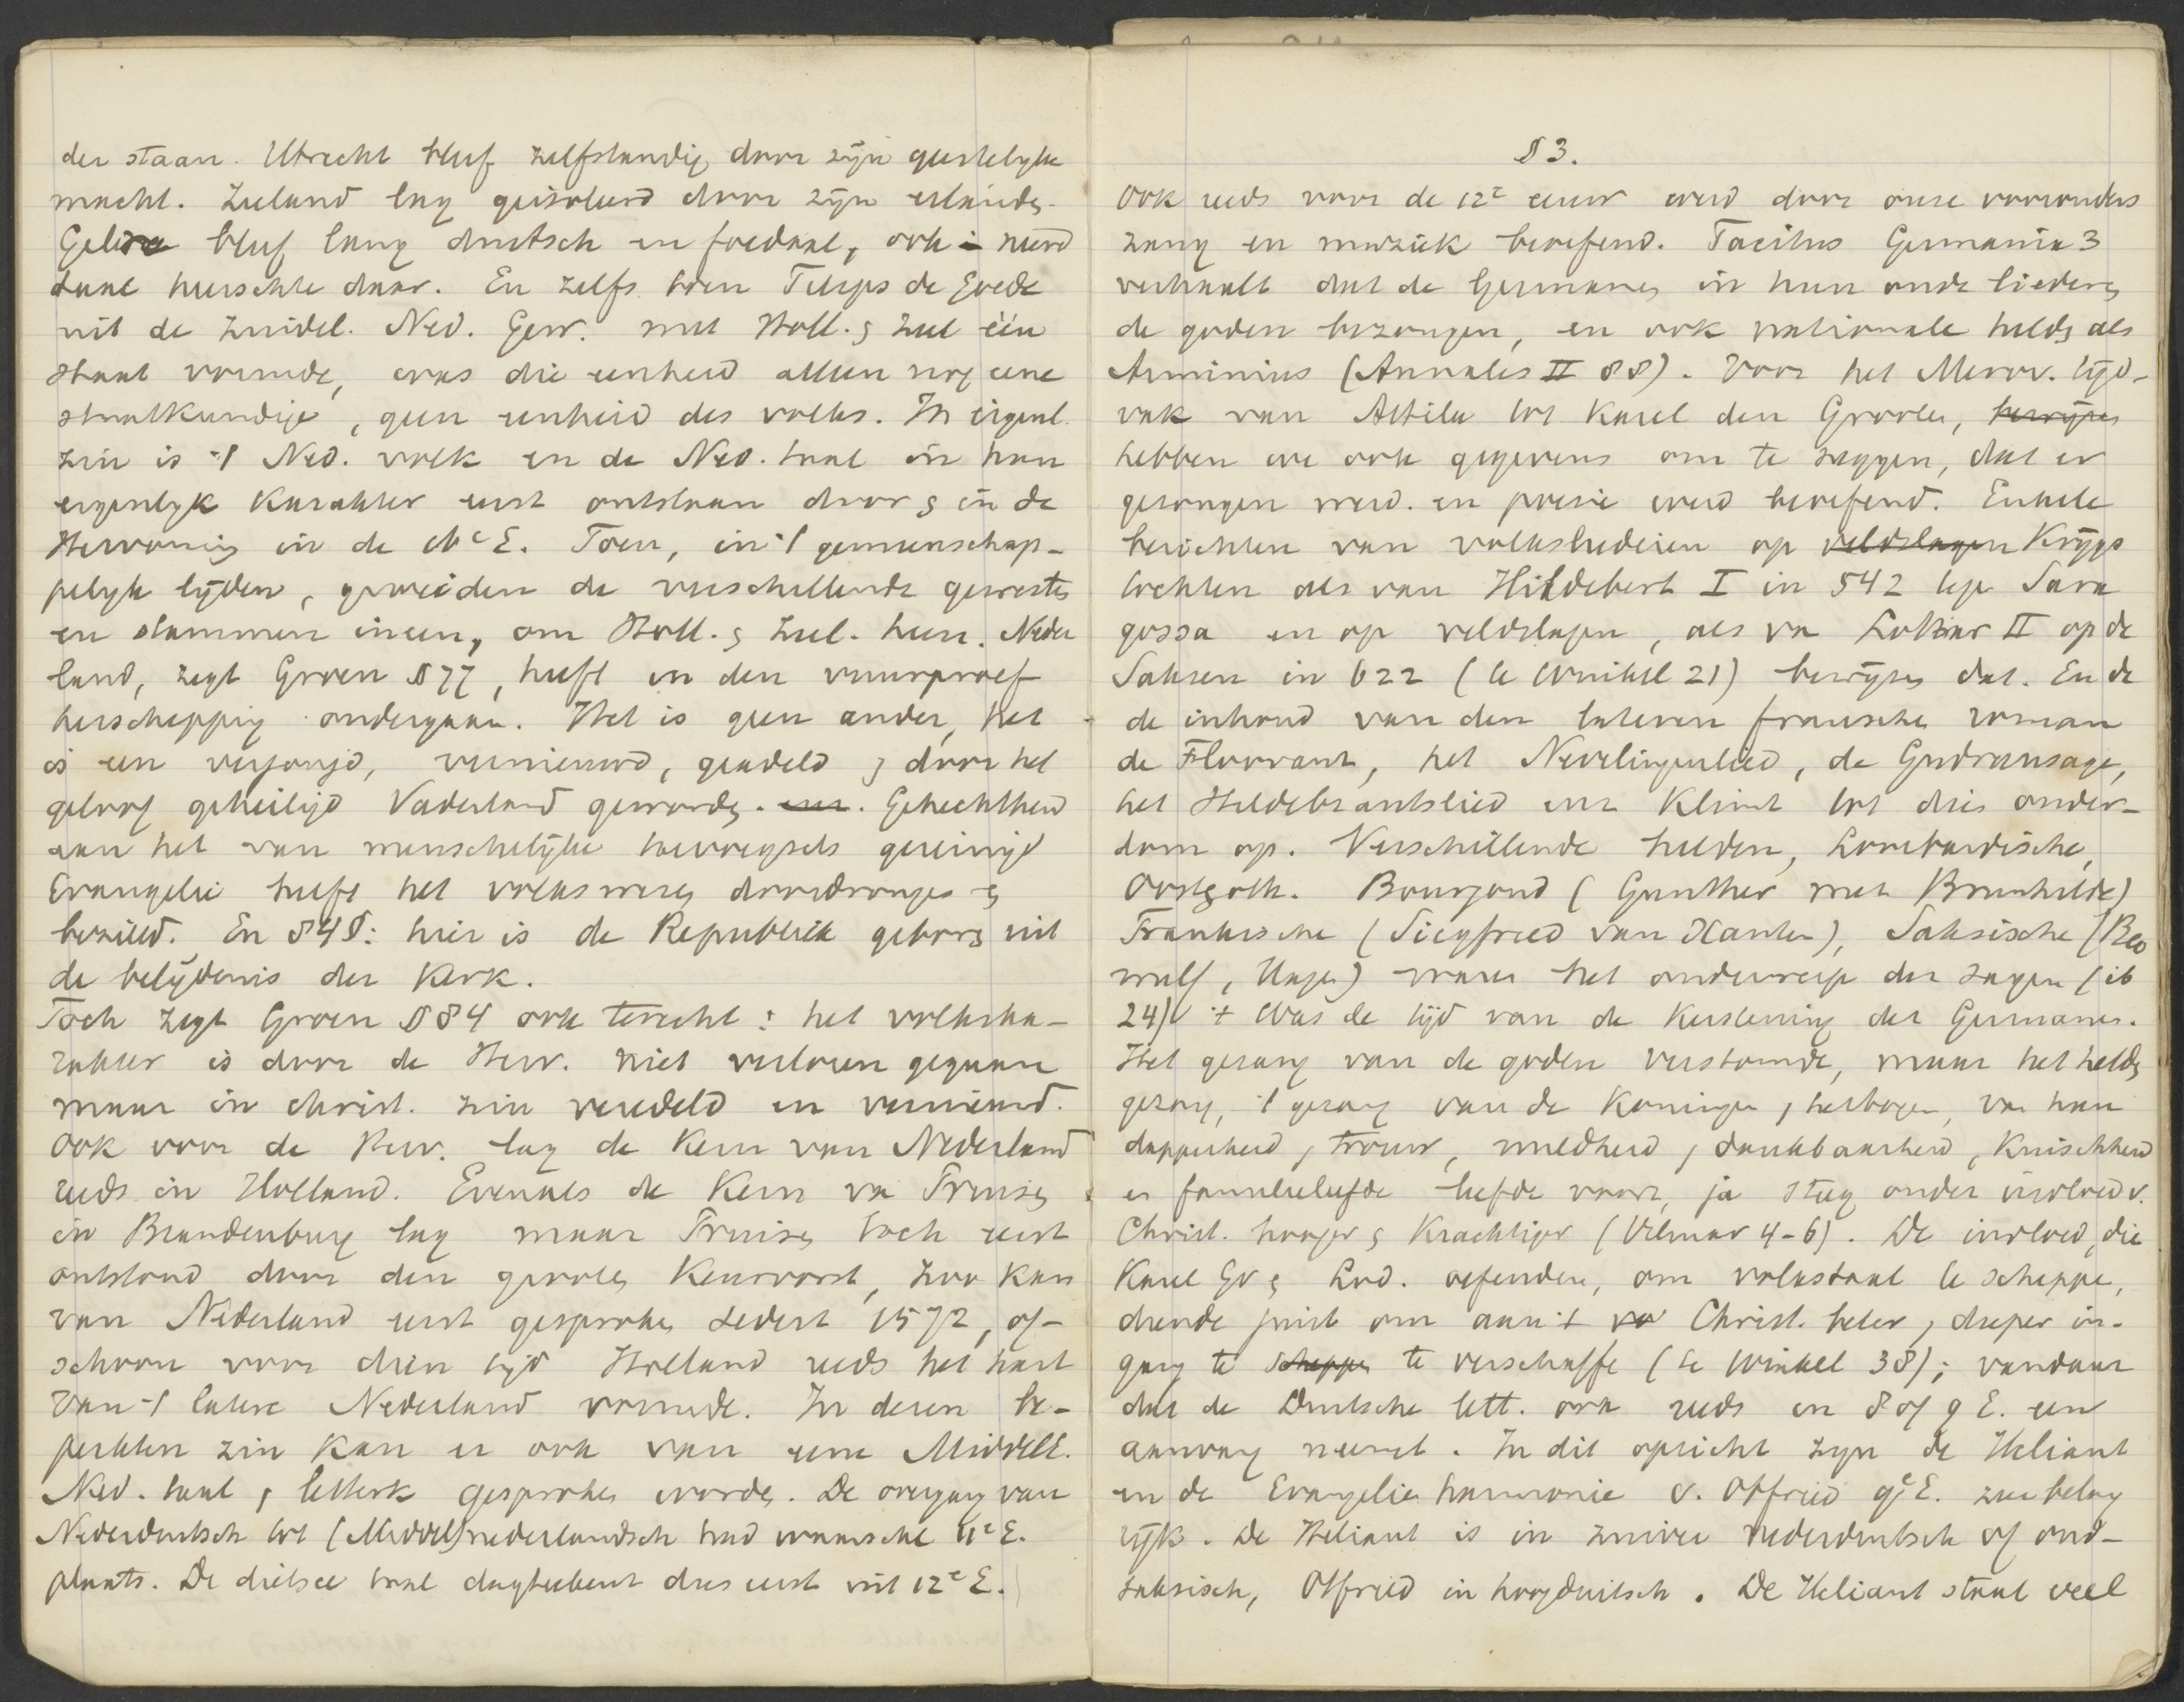 der staan. Utrecht bleef zelfstandig door zijn geestelyke
macht. Zeeland lag geisoleerd door zijn eilanden.
Gelre bleef lang duitsch en feodaal, ook in
taal heerschte daar. En zelfs toen Filips de Goede
uit de Zuidel. Ned. Gew. met Holl. & Zeel één
staat vormde, was die eenheid alleen nog eene
staatkundige, geen eenheid des volks. In eigenl.
zin is 't Ned. volk en de Ned. taal in hun
eigenlyk karakter eerst ontstaan door & in de
Hervorming in de 16e E. Toen, in 't gemeenschap-
pelyk lijden, groeiden de verschillende gewesten
en stammen ineen, om Holl. & Zeel. heen. Neder
land, zegt Groen § 77, heeft in den vuurproef
herschepping ondergaan. Het is geen ander, het
is een verjongd, vernieuwd, geadeld & door het
geloof geheiligd Vaderland geworden. Gehechtheid
aan het van menschelijke toevoegsels gereinigd
Evangelie heeft het volkswezen doordrongen &
bezield. En § 48: hier is de Republiek geboren uit
de belijdenis der Kerk.
Toch zegt Groen § 84 ook terecht: het volkska-
rakter is door de Herv. niet verloren gegaan
maar in christ. zin veredeld en vernieuwd.
Ook voor de Herv. lag de Kern van Nederland
reeds in Holland. Evenals de Kern van Pruisen
in Brandenburg lag maar Pruisen toch eerst
ontstond door den grooten Keurvorst, zoo kan
van Nederland eerst gesproken sedert 1572, of-
schoon voor dien tijd Holland reeds het hart
van 't latere Nederland vormde. In dezen be-
perkten zin kan er ook van eene Middel.
Ned. taal & letterk gesproken worden. De overgang van
Nederduitsch tot (Middel)nederlandsch had waarschl 11e E.
plaats. De dietsce taal dagteekent dus eerst uit 12e E.
§ 3.
Ook reeds voor de 12e eeuw werd door onze voorouders
zang en muziek beoefend. Tacitus Germania 3
verhaalt dat de Germanen in hun oude liederen
de goden bezongen, en ook nationale helden als
Arminius (Annales II 88). Voor het Merov. tijd-
vak van Attila tot Karel den Groote, bewijzen
hebben we ook gegevens om te zeggen, dat er
gezongen werd en poezie werd beoefend. Enkele
berichten van volksliederen op veldslagen Krijgs
tochten als van Hildebert I in 542 tegen Sara
gossa en op veldslagen, als van Lothar II op de
Saksen in 622 (te Winkel 21) bewijzen dat. En de
de inhoud van den lateren fransche roman
de Floovant, het Nevelingenlied, de Gudrunsage,
het Hildebrantslied enz klimt tot dien ouder-
dom op. Verschillende helden, Lombardische,
Oostgoth. Bourgond (Gunther met Brunhilde)
Frankische (Siegfried van Xanten), Saksische (Beo
wulf, Hagen) waren het onderwerp der sagen (ib
24) 't Was de tijd van de Kerstening der Germanen.
Het gezang van de goden verstomde, maar het helden
gezang, 't gezang van de Koningen, hertogen, van hun
dapperheid, trouw, mildheid, dankbaarheid, kuischheid
en familieliefde leefde voort, ja steeg onder invloed v.
Christ. hooger & Krachtiger (Vilmar 4-6). De invloed, die
Karel Gr & Lod. oefenden, om volkstaal te scheppen,
diende juist om aan 't Christ. beter, dieper in-
gang te scheppen te verschaffen (te Winkel 38); vandaar
dat de Duitsche lett. ook reeds in 8 of 9 E. een
aanvang neemt. In dit opzicht zijn de Heliant
en de Evangelie harmonie v. Otfried 9e E. zeer belang
rijk. De Heliant is in zuiver nederduitsch of oud-
saksisch, Otfried in hoogduitsch. De Heliant staat veel